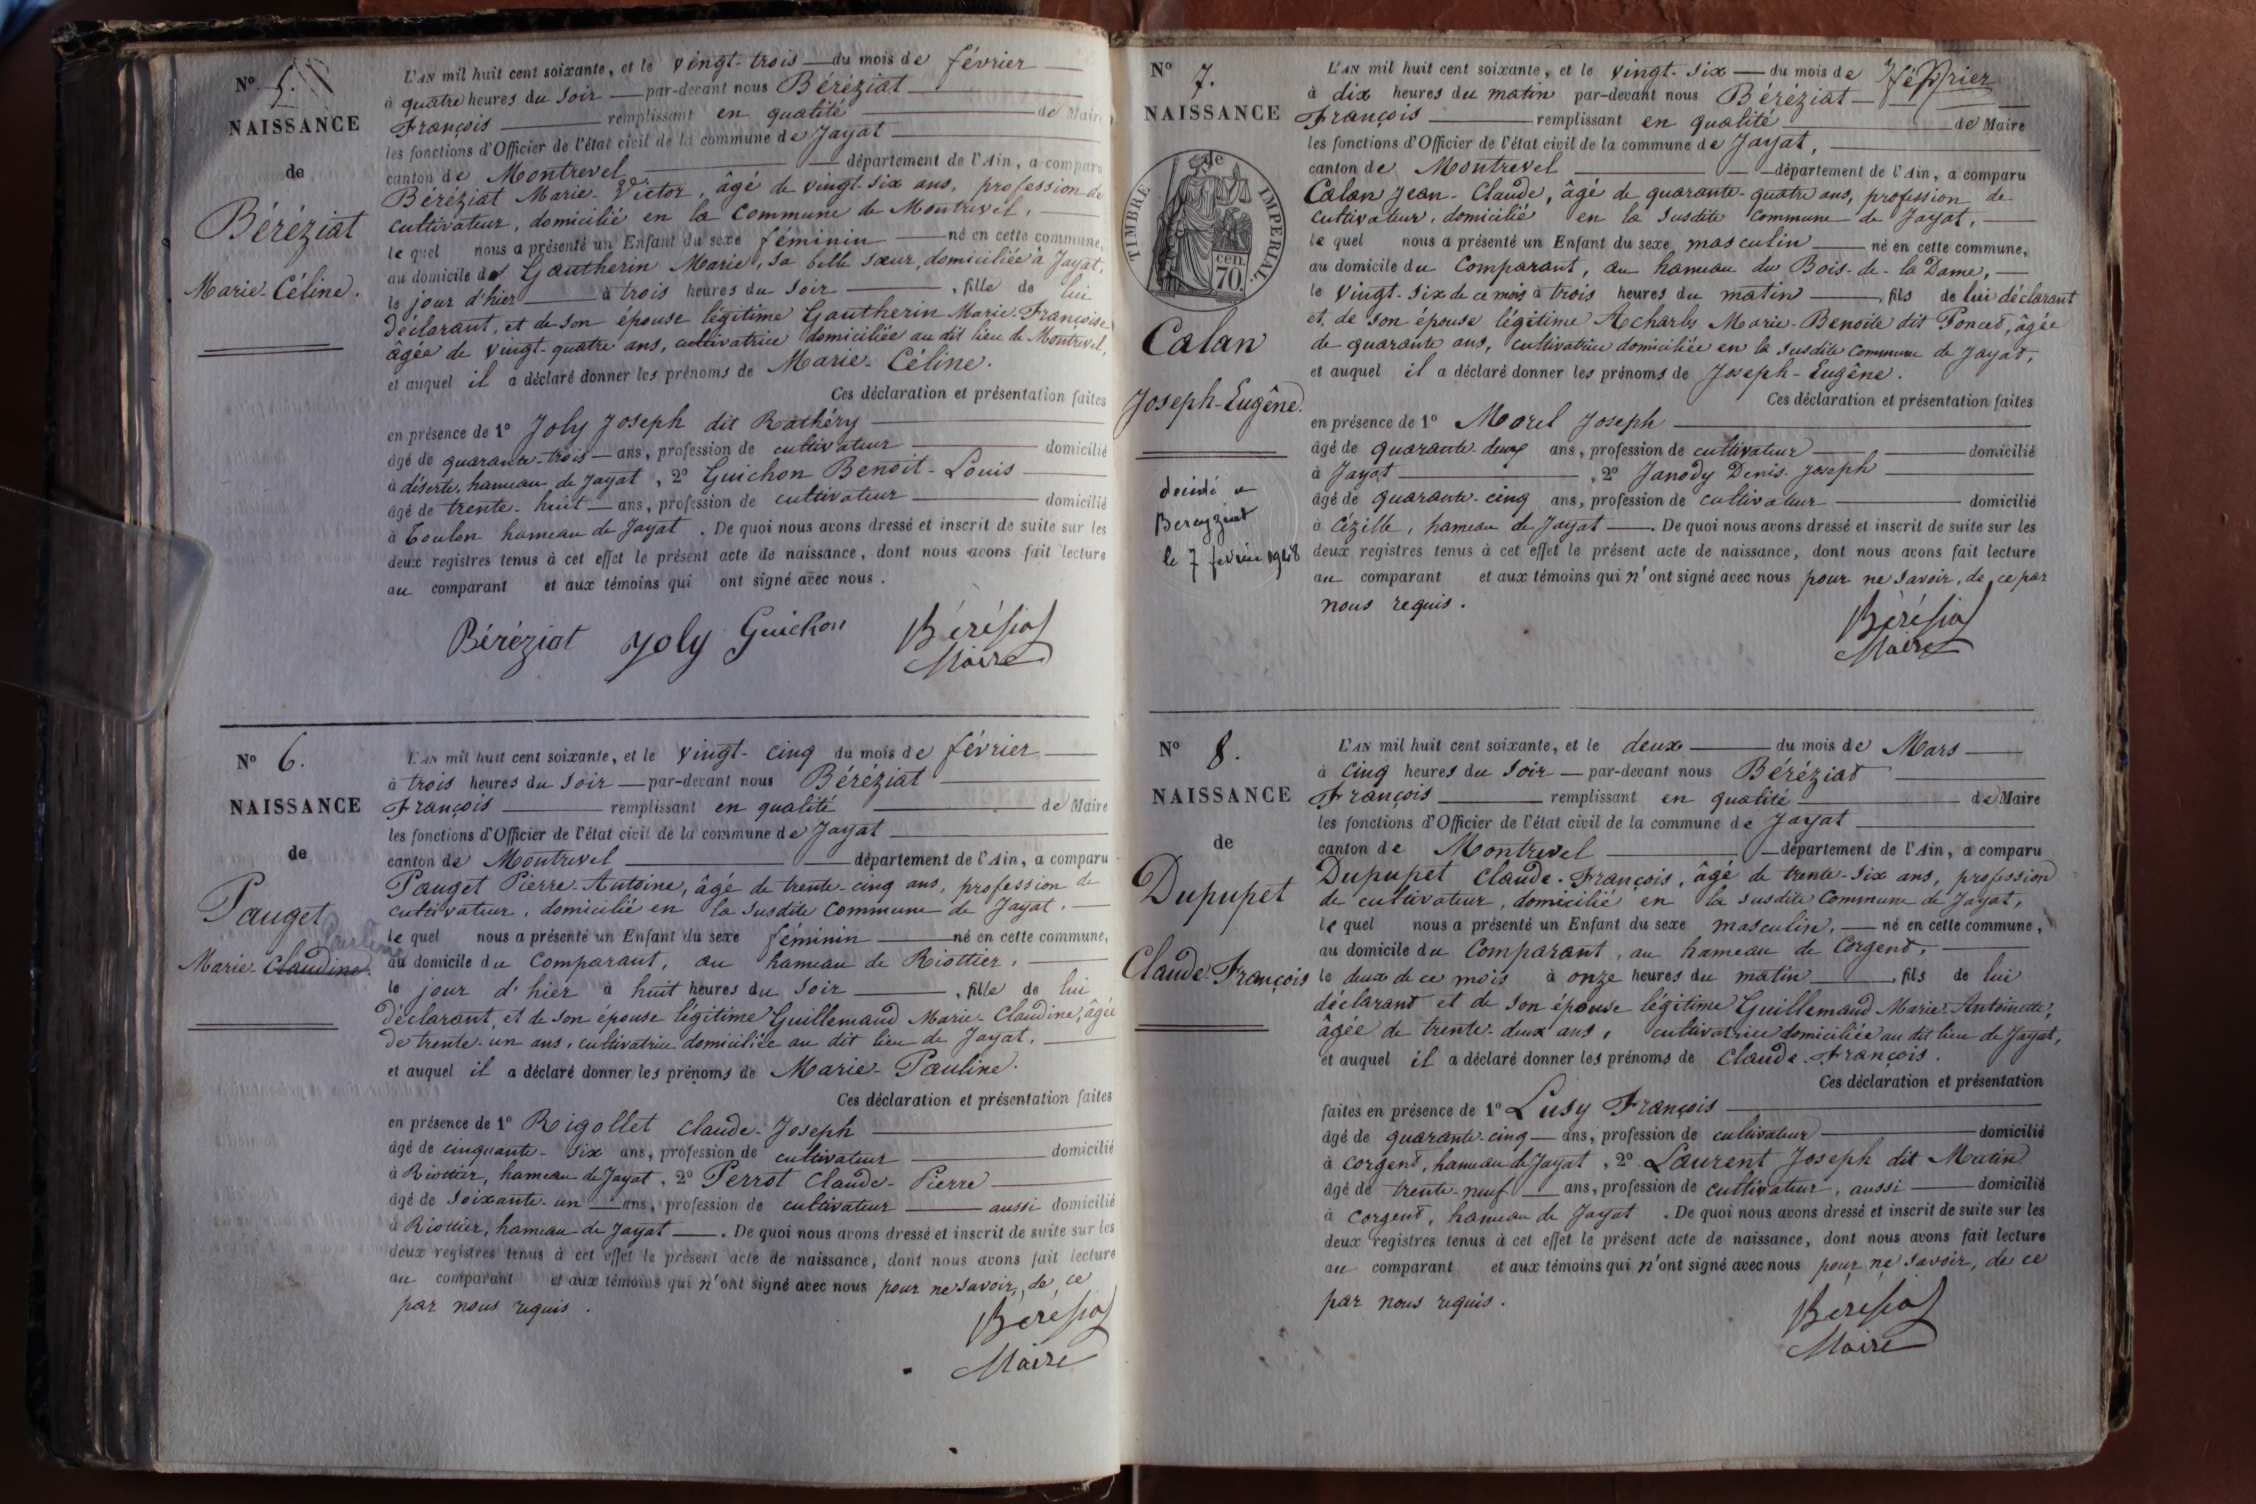 N° 5.
NAISSANCE
de
Béréziat
Marie-Céline.
L'AN mil huit cent soixante, et le vingt-trois du mois de février
à quatre heures du soir par-devant nous Béréziat
François remplissant en qualité de Maire
les fonctions d'Officier de l'état civil de la commune de Jayat
canton de Montrevel département de l'Ain, a comparu
Béréziat Marie-Victor, âgé de vingt-six ans, profession de
cultivateur, domicilié en la commune de Montrevel,
le quel nous a présenté un Enfant du sexe féminin né en cette commune,
au domicile de Gautherin Marie, sa belle sœur, domiciliée à Jayat,
le jour d'hier à trois heures du soir, fille de lui
déclarant, et de son épouse légitime Gautherin Marie-Françoise,
âgée de vingt-quatre ans, cultivatrice domiciliée au dit lieu de Montrevel,
et auquel il a déclaré donner les prénoms de Marie-Céline.
Ces déclaration et présentation faites
en présence de 1° Joly Joseph dit Rathéry
âgé de quarante-trois ans, profession de cultivateur domicilié
à déserte, hameau de Jayat, 2° Guichon Benoit-Louis
âgé de trente-huit ans, profession de cultivateur domicilié
à Toulon hameau de Jayat. De quoi nous avons dressé et inscrit de suite sur les
deux registres tenus à cet effet le présent acte de naissance, dont nous avons fait lecture
au comparant et aux témoins qui ont signé avec nous.
Béréziat Joly Guichon Béréziat
Maire
N° 6.
NAISSANCE
de
Pauget
Pauline
Marie-Claudine.
L'AN mil huit cent soixante, et le vingt-cinq du mois de février
à trois heures du soir par-devant nous Béréziat
François remplissant en qualité de Maire
les fonctions d'Officier de l'état civil de la commune de Jayat
canton de Montrevel département de l'Ain, a comparu
Pauget Pierre-Antoine, âgé de trente-cinq ans, profession de
cultivateur, domicilié en la susdite commune de Jayat,
le quel nous a présenté un Enfant du sexe féminin né en cette commune,
au domicile du comparant, au hameau de Riottier,
le jour d'hier à huit heures du soir, fille de lui
déclarant, et de son épouse légitime Guillemaud Marie-Claudine, âgée
de trente-un ans, cultivatrice domiciliée au dit lieu de Jayat,
et auquel il a déclaré donner les prénoms de Marie-Pauline.
Ces déclaration et présentation faites
en présence de 1° Rigollet Claude-Joseph
âgé de cinquante-six ans, profession de cultivateur domicilié
à Riottier, hameau de Jayat, 2° Perrot Claude-Pierre
âgé de soixante-un ans, profession de cultivateur aussi domicilié
à Riottier, hameau de Jayat. De quoi nous avons dressé et inscrit de suite sur les
deux registres tenus à cet effet le présent acte de naissance, dont nous avons fait lecture
au comparant et aux témoins qui n'ont signé avec nous pour ne savoir, de ce
par nous requis.
Béréziat
Maire
N° 7.
NAISSANCE
de
TIMBRE IMPERIAL
70 cen.
Calan
Joseph-Eugêne.
décédé a
Bereyziat
le 7 fevrier 1948
L'AN mil huit cent soixante, et le vingt-six du mois de février
à dix heures du matin par-devant nous Béréziat
François remplissant en qualité de Maire
les fonctions d'Officier de l'état civil de la commune de Jayat,
canton de Montrevel département de l'Ain, a comparu
Calan Jean-Claude, âgé de quarante-quatre ans, profession de
cultivateur, domicilié en la susdite commune de Jayat,
le quel nous a présenté un Enfant du sexe masculin né en cette commune,
au domicile du comparant, au hameau du Bois-de-la Dame,
le vingt-six de ce mois à trois heures du matin, fils de lui déclarant
et de son épouse légitime Acharles Marie-Benoite dit Poncet, âgée
de quarante ans, cultivatrice domiciliée en la susdite commune de Jayat,
et auquel il a déclaré donner les prénoms de Joseph-Eugêne.
Ces déclaration et présentation faites
en présence de 1° Morel Joseph
âgé de quarante-deux ans, profession de cultivateur domicilié
à Jayat, 2° Janody Denis-Joseph
âgé de quarante-cinq ans, profession de cultivateur domicilié
à Cézille, hameau de Jayat. De quoi nous avons dressé et inscrit de suite sur les
deux registres tenus à cet effet le présent acte de naissance, dont nous avons fait lecture
au comparant et aux témoins qui n'ont signé avec nous pour ne savoir, de ce par
nous requis.
Béréziat
Maire
N° 8.
NAISSANCE
de
Dupupet
Claude-François
L'AN mil huit cent soixante, et le deux du mois de Mars
à cinq heures du soir par-devant nous Béréziat
François remplissant en qualité de Maire
les fonctions d'Officier de l'état civil de la commune de Jayat
canton de Montrevel département de l'Ain, a comparu
Dupupet Claude-François, âgé de trente-six ans, profession
de cultivateur, domicilié en la susdite commune de Jayat,
le quel nous a présenté un Enfant du sexe masculin, né en cette commune,
au domicile du comparant, au hameau de Corgent,
le deux de ce mois à onze heures du matin, fils de lui
déclarant et de son épouse légitime Guillemaud Marie-Antoinette,
âgée de trente-deux ans, cultivatrice domiciliée au dit lieu de Jayat,
et auquel il a déclaré donner les prénoms de Claude-François.
Ces déclaration et présentation
faites en présence de 1° Lusy François
âgé de quarante-cinq ans, profession de cultivateur domicilié
à Corgent, hameau de Jayat, 2° Laurent Joseph dit Matin
âgé de trente-neuf ans, profession de cultivateur, aussi domicilié
à Corgent, hameau de Jayat. De quoi nous avons dressé et inscrit de suite sur les
deux registres tenus à cet effet le présent acte de naissance, dont nous avons fait lecture
au comparant et aux témoins qui n'ont signé avec nous pour ne savoir, de ce
par nous requis.
Béréziat
Maire